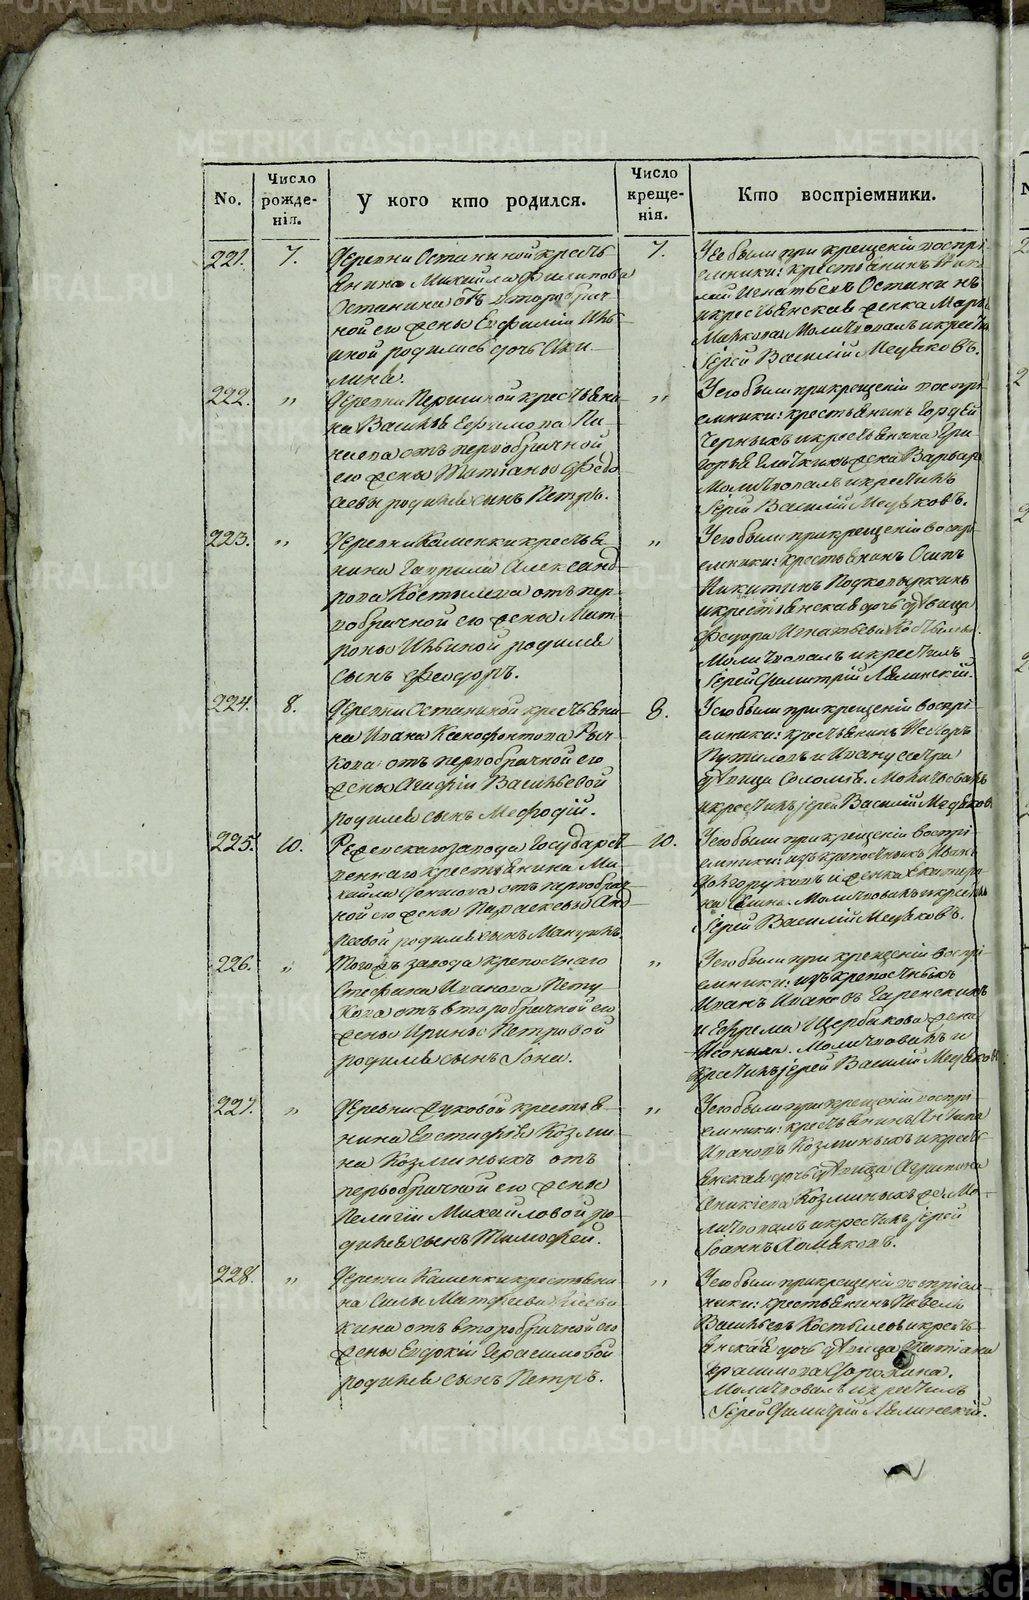 No.
Число рожде-нія.
У кого кто родился.
Число креще-нія.
Кто воспріемники.
221.
7.
Деревни Останиной кресть
янина Михайла Филипова
Останина отъ второбрач-
ной его жены Евфиміи Иль
иной родилась дочь Аки-
лина.
7.
У ее были при крещеніи воспрі
емники: крестьянинъ
Игнатьевъ Останинъ
и крестьянская женка
Молитвовалъ и крести
Іерей Василій Медяковъ.
222.
"
Деревни Першиной крестьяни
на Василья Ефимова Пи-
отъ первобрачной
его жены Татіаны Федо
родился сынъ Петръ.
"
У его были при крещеніи воспрі
емники: крестьянинъ Гордѣй
Черныхъ и крестьянина Гри-
горья жена Варвара
Молитвовалъ и крестилъ
Іерей Василій Медяковъ.
223.
"
Деревни Каменки крестья
нина Гаврила Александ-
рова Костылева отъ пер-
вобрачной его жены Мат-
роны Ильиной родился
сынъ Феодоръ.
"
У его были при крещеніи воспрі-
емники: крестьянинъ Осипъ
Никитинъ Подкопыркинъ
и крестьянская дочь дѣвица
Федора Игнатьева
Молитвовалъ и крестилъ
Іерей Димитрій Ляпинскій.
224.
8.
Деревни Останиной крестьяни-
на Ивана Ксенофонтова Рыч
кова отъ первобрачной его
жены Агафіи Васильевой
родился сынъ Мефодій.
8.
У его были при крещеніи воспрі-
емники: крестьянинъ Несторъ
Путиловъ и Ивану сестра
дѣвица Соломія. Молитвовалъ
и крестилъ Іерей Василій Медяковъ
225.
10.
Режевскаго завода Государст-
веннаго крестьянина Ми-
хайла отъ первобрач-
ной его жены Параскевы Анд-
реевой родился сынъ Мануилъ.
10.
У его были при крещеніи воспрі-
емники: изъ крепостныхъ Иванъ
Долгоруковъ и женка Екатери-
на Молитвовалъ и крестилъ
Іерей Василій Медяковъ.
226.
"
Тогожъ завода крепостнаго
Стефана Иванова Пету-
хова отъ второбрачной его
жены Ирины Петровой
родился сынъ Іона.
"
У его были при крещеніи воспрі
емники: изъ крепостныхъ
Иванъ Ивановъ
и Ефрема Щербакова жена
Молитвовалъ и
крестилъ Іерей Василій Медяковъ
227.
"
Деревни Жуковой крестья-
нина Евстафія Козми-
на Козминыхъ отъ
первобрачной его жены
Пелагіи Михайловой ро-
дился сынъ Тимофей.
"
У его были при крещеніи воспрі-
емники: крестьянинъ Антипа
Ивановъ Козминыхъ и кресть
янская дочь дѣвица Агрипина
Аникіева Козминыхъ же Мо-
литвовалъ и крестилъ Іерей
Іоаннъ Хомяковъ.
228.
"
Деревни Каменки крестьяни
на Силы Матфеева
отъ второбрачной его
жены Евдокіи Герасимовой
родился сынъ Петръ.
"
У его были при крещеніи воспріем-
ники: крестьянинъ Павелъ
Васильевъ Костылевъ и кресть-
янская дочь дѣвица Татіана
Молитвовалъ и крестилъ
Іерей Димитрій Ляпинскій.
METRIKI.GASO-URAL.RU